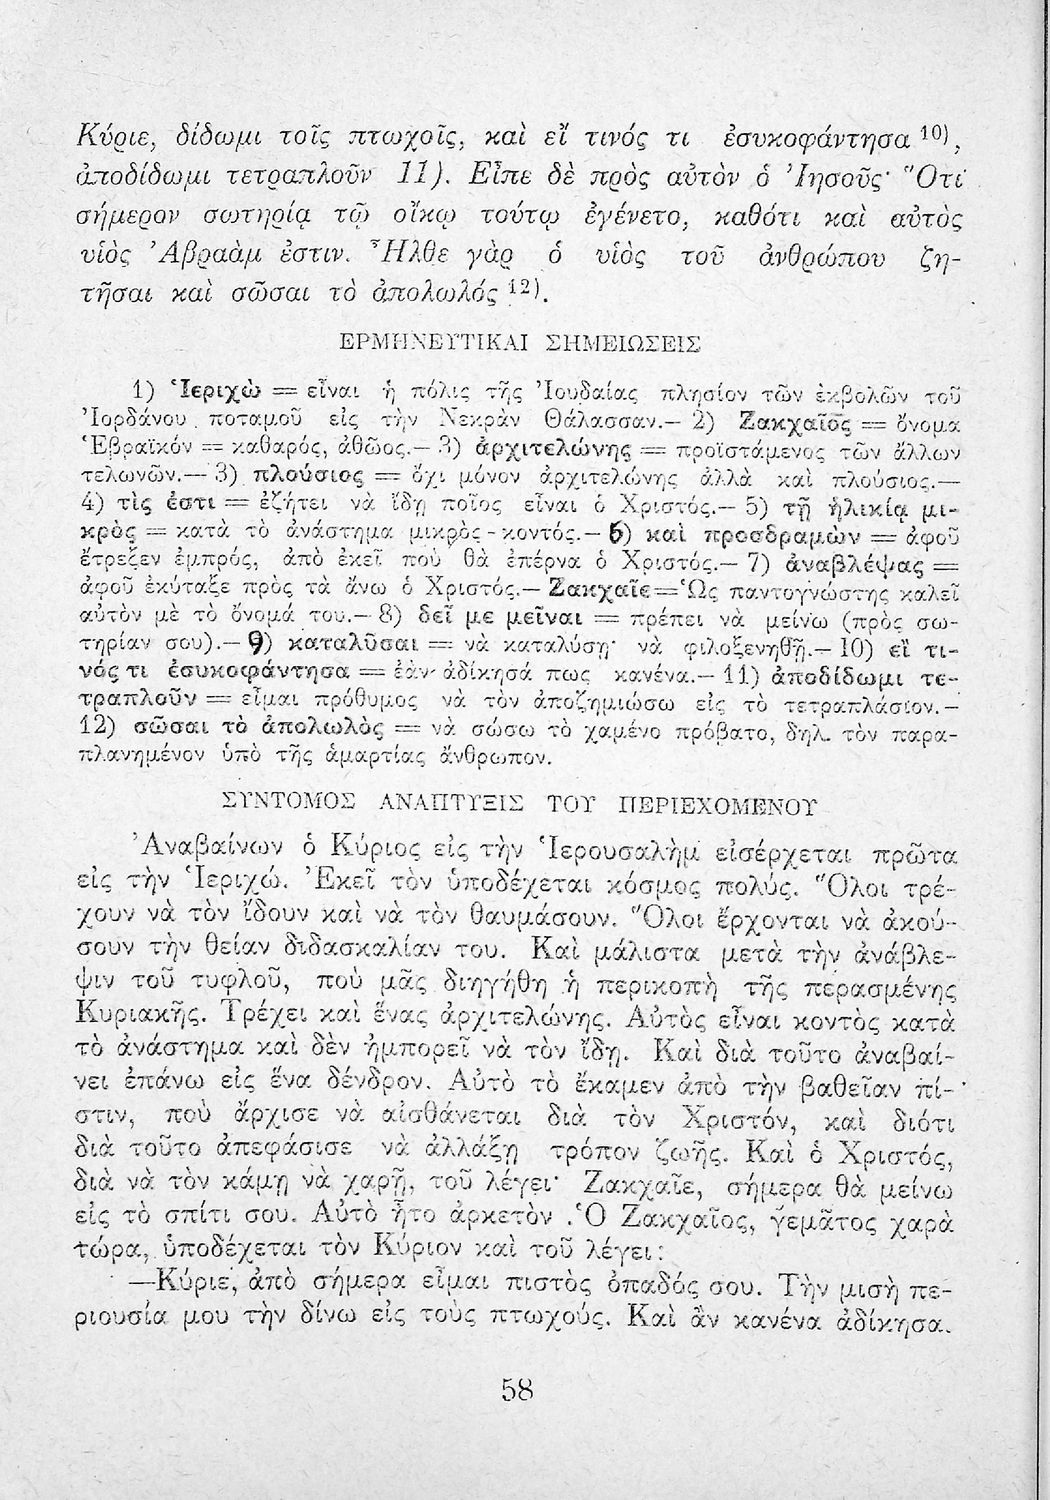 Κύριε, δίδωμι τοῖς πτωχοῖς, καὶ εἴ τινός τι ἐσυκοφάντησα 10),
ἀποδίδωμι τετραπλοῦν 11). Εἶπε δὲ πρὸς αὐτὸν ὁ Ἰησοῦς· Ὅτι
σήμερον σωτηρίᾳ τῷ οἴκῳ τούτῳ ἐγένετο, καθότι καὶ αὐτὸς
υἱὸς Ἀβραὰμ ἐστιν. Ἦλθε γὰρ ὁ υἱὸς τοῦ ἀνθρώπου ζη-
τῆσαι καὶ σῶσαι τὸ ἀπολωλός 12).
ΕΡΜΗΝΕΥΤΙΚΑΙ ΣΗΜΕΙΩΣΕΙΣ
1) Ἱεριχὼ = εἶναι ἡ πόλις τῆς Ἰουδαίας πλησίον τῶν ἐκβολῶν τοῦ
Ἰορδάνου ποταμοῦ εἰς τὴν Νεκρὰν Θάλασσαν.— 2) Ζακχαῖος = ὄνομα
Ἑβραϊκόν = καθαρός, ἀθῶος.— 3) ἀρχιτελώνης = προϊστάμενος τῶν ἄλλων
τελωνῶν.— 3) πλούσιος = ὄχι μόνον ἀρχιτελώνης ἀλλὰ καὶ πλούσιος.—
4) τὶς ἐστι = ἐζήτει νὰ ἴδῃ ποῖος εἶναι ὁ Χριστός.— 5) τῇ ἡλικίᾳ μι-
κρὸς = κατὰ τὸ ἀνάστημα μικρὸς - κοντός.— 6) καὶ προσδραμὼν = ἀφοῦ
ἔτρεξεν ἐμπρός, ἀπὸ ἐκεῖ ποὺ θὰ ἐπέρνα ὁ Χριστός.— 7) ἀναβλέψας =
ἀφοῦ ἐκύταξε πρὸς τὰ ἄνω ὁ Χριστός.— Ζακχαῖε=Ὡς παντογνώστης καλεῖ
αὐτὸν μὲ τὸ ὄνομά του.— 8) δεῖ με μεῖναι = πρέπει νὰ μείνω (πρὸς σω-
τηρίαν σου).— 9) καταλῦσαι = νὰ καταλύσῃ· νὰ φιλοξενηθῇ.— 10) εἴ τι-
νός τι ἐσυκοφάντησα = ἐὰν ἀδίκησά πως κανένα.— 11) ἀποδίδωμι τε-
τραπλοῦν = εἶμαι πρόθυμος νὰ τὸν ἀποζημιώσω εἰς τὸ τετραπλάσιον.—
12) σῶσαι τὸ ἀπολωλὸς = νὰ σώσω τὸ χαμένο πρόβατο, δηλ. τὸν παρα-
πλανημένον ὑπὸ τῆς ἁμαρτίας ἄνθρωπον.
ΣΥΝΤΟΜΟΣ ΑΝΑΠΤΥΞΙΣ ΤΟΥ ΠΕΡΙΕΧΟΜΕΝΟΥ
Ἀναβαίνων ὁ Κύριος εἰς τὴν Ἱερουσαλὴμ εἰσέρχεται πρῶτα
εἰς τὴν Ἱεριχώ. Ἐκεῖ τὸν ὑποδέχεται κόσμος πολύς. Ὅλοι τρέ-
χουν νὰ τὸν ἴδουν καὶ νὰ τὸν θαυμάσουν. Ὅλοι ἔρχονται νὰ ἀκού-
σουν τὴν θείαν διδασκαλίαν του. Καὶ μάλιστα μετὰ τὴν ἀνάβλε-
ψιν τοῦ τυφλοῦ, ποὺ μᾶς διηγήθη ἡ περικοπὴ τῆς περασμένης
Κυριακῆς. Τρέχει καὶ ἕνας ἀρχιτελώνης. Αὐτὸς εἶναι κοντὸς κατὰ
τὸ ἀνάστημα καὶ δὲν ἠμπορεῖ νὰ τὸν ἴδῃ. Καὶ διὰ τοῦτο ἀναβαί-
νει ἐπάνω εἰς ἕνα δένδρον. Αὐτὸ τὸ ἔκαμεν ἀπὸ τὴν βαθεῖαν πί-
στιν, ποὺ ἄρχισε νὰ αἰσθάνεται διὰ τὸν Χριστόν, καὶ διότι
διὰ τοῦτο ἀπεφάσισε νὰ ἀλλάξῃ τρόπον ζωῆς. Καὶ ὁ Χριστός,
διὰ νὰ τὸν κάμῃ νὰ χαρῇ, τοῦ λέγει· Ζακχαῖε, σήμερα θὰ μείνω
εἰς τὸ σπίτι σου. Αὐτὸ ἦτο ἀρκετὸν .Ὁ Ζακχαῖος, γεμᾶτος χαρὰ
τώρα, ὑποδέχεται τὸν Κύριον καὶ τοῦ λέγει:
—Κύριε, ἀπὸ σήμερα εἶμαι πιστὸς ὀπαδός σου. Τὴν μισὴ πε-
ριουσία μου τὴν δίνω εἰς τοὺς πτωχούς. Καὶ ἂν κανένα ἀδίκησα.
58